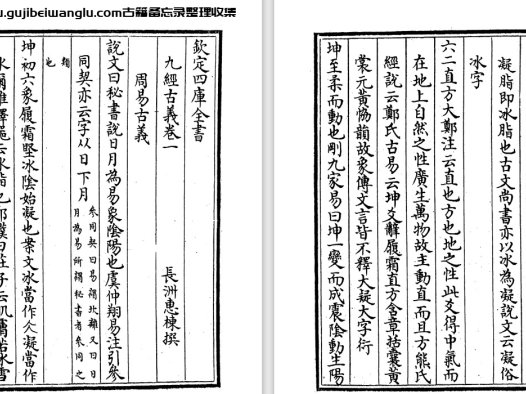 .gujibeiwanglu.com古籍备忘录整理收集
欽定四庫全書
九經古義卷一
長洲惠棟撰
周易古義
說文曰秘書說日月為易象陰陽也虞仲翔易注引參
同契亦云字从日下月
參同契曰易謂坎離又曰日
月為易所謂秘書者參同之
類
也
坤初六象履霜堅冰陰始凝也案文冰當作仌凝當作
冰爾雅釋器云冰脂也郭璞曰莊子云肌膚若冰雪
凝脂即冰脂也古文尚書亦以冰為凝說文云凝俗
冰字
六二直方大鄭注云直也方也地之性此爻得中氣而
在地上自然之性廣生萬物故主動直而且方熊氏
經說云鄭氏古易云坤爻辭履霜直方含章括囊黃
裳元黃協韻故象傳文言皆不釋大疑大字衍
坤至柔而動也剛九家易曰坤一變而成震陰動生陽